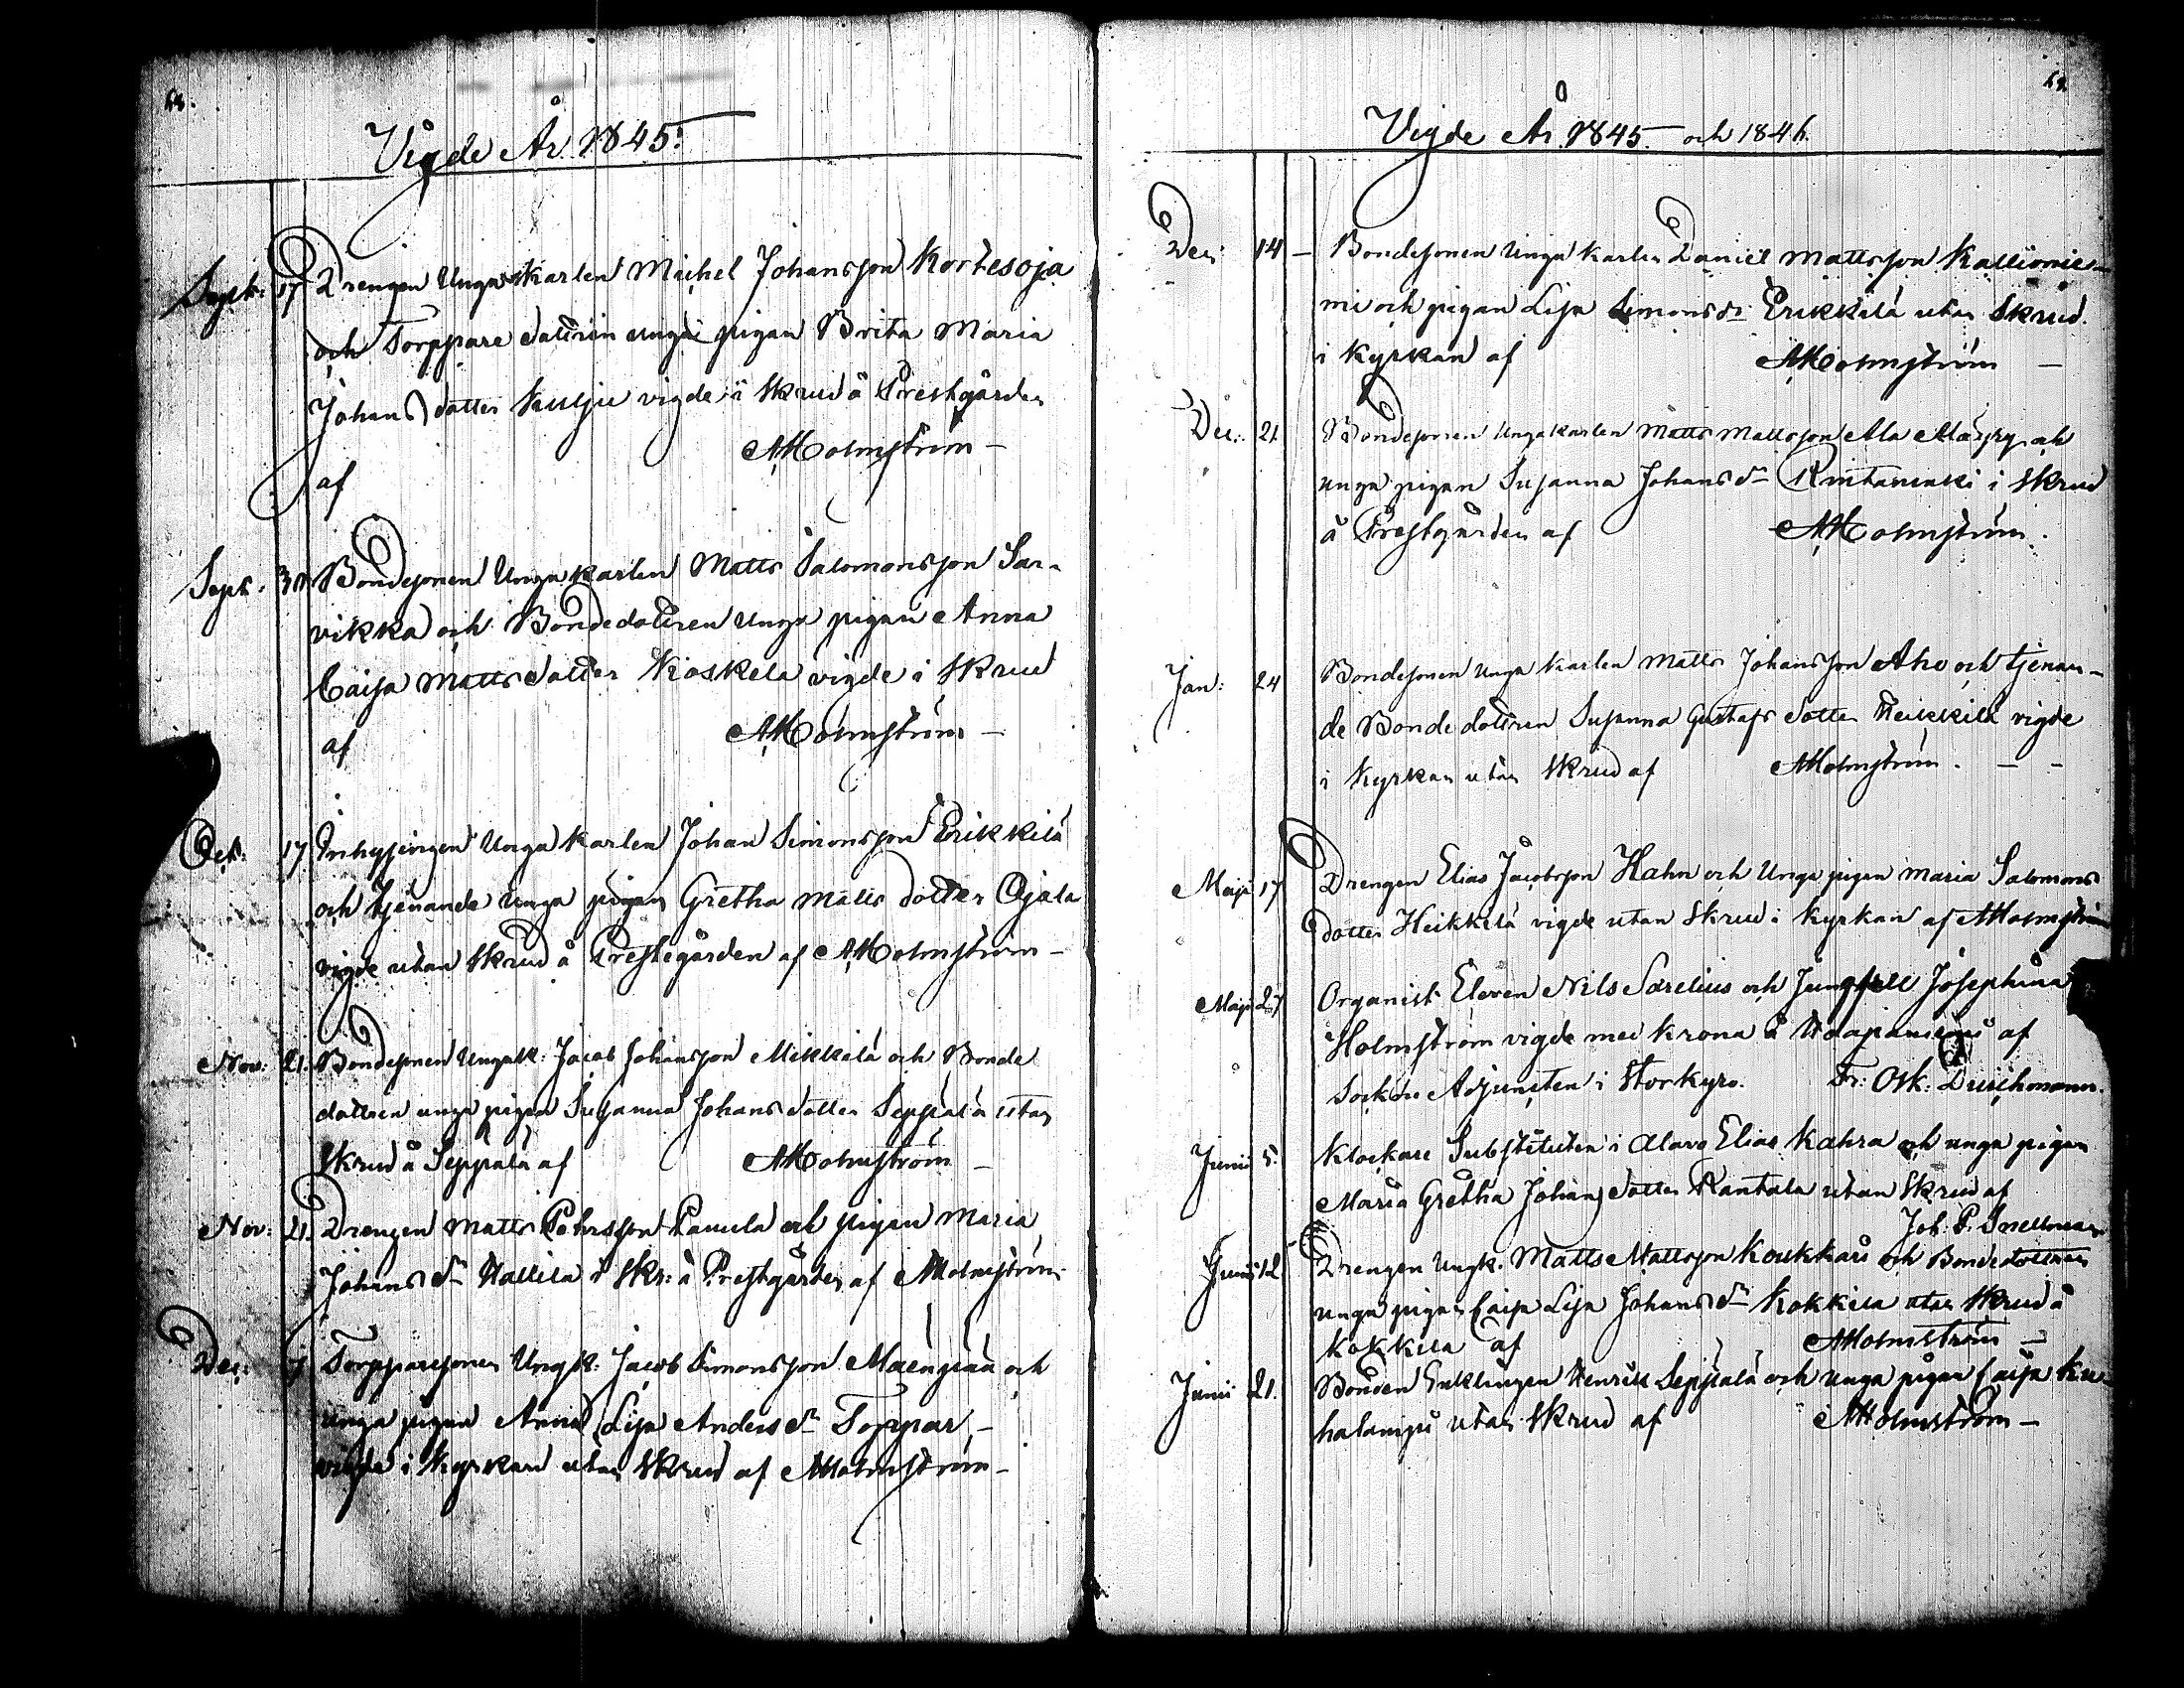 68.
Vigde År 1845.
Sept: 17 Drengen Unga karlen Michel Johansson Kortesoja
och Torppare dottren unga pigan Brita Maria
Johans dotter Kulju vigde i Skrud å Prestgården
af AHolmström
Sept. 30 Bondesonen Unga karlen Matts Salomonsson Sar-
vikka och Bondedottren unga pigan Anna
Caisa Matts dotter Koskela vigde i Skrud
af AHolmström
Oct. 17 Inhysingen Unga karlen Johan Simonsson Erikkilä
och tjenande unga pigan Gretha Matts dotter Ojala
vigde utan Skrud å Prestegården af AHolmström
Nov: 21. Bondesonen Ungak: Jacob Johansson Mikkilä och Bonde
dottren unga pigan Susanna Johans dotter Seppälä utan
Skrud å Seppälä af AHolmström
Nov: 21. Drengen Matts Pehrsson Panula och pigan Maria
Johans dr Hallila i Skr: å Prestgården af AHolmström
Dec. 7 Torpparesonen Ungk: Jacob Simonsson Mäenpää och
unga pigan Anna Lisa Anders dr Toppar
vigde i Kyrkan utan Skrud af AHolmström
69.
Vigde År 1845 och 1846.
Dec 14 Bondesonen Unga karlen Daniel Mattsson Kallionie-
mi och pigan Lisa Simons dr Erikkilä utan Skrud
i Kyrkan af AHolmström
Dec. 21 Bondesonen Ungakarlen Matts Mattsson Ala och
unga pigan Susanna Johans dr i Skrud
å Prestgården af AHolmström.
Jan: 24 Bondesonen unga karlen Matts Johansson Aho och tjenan-
de Bonde dottren Susanna Gustafs dotter Heikkilä vigde
i Kyrkan utan Skrud af AHolmström.
Maji 17 Drengen Elias Jacobsson Hahn och Unga pigan Maria Salomons
dotter Heikkilä vigde utan Skrud i Kyrkan af AHolmström
Maji 27 Organist Eleven Nils Sarelius och Josephina
Holmström vigde med krona å af
Sockne Adjuncten i Storkyro. Fr: Osk: Durchman.
Junii 5. Klockare Substituten i Alavo Elias Kahra och unga pigan
Maria Gretha Johans dotter Rantala utan Skrud af
Joh: P. Snellman
Junii 12 Drengen Ungk. Matts Mattsson Koukkari och Bondedottren
unga pigan Caisa Lisa Johans dr Kokkila utan Skrud å
Kokkila af AHolmström
Junii 21. Bonden Enklingen Henrik Seppälä och unga pigan Caisa Ku-
halampi utan Skrud af AHolmström